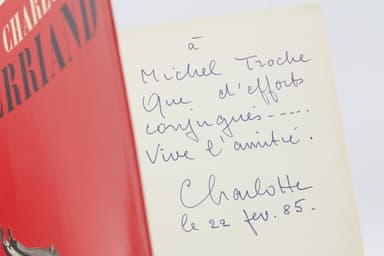 CHARL
RRIAND
à
Michel Troche
Que d'efforts
conjugués-----.
Vive l'amitié.
Charlotte
le 22 fev. 85.